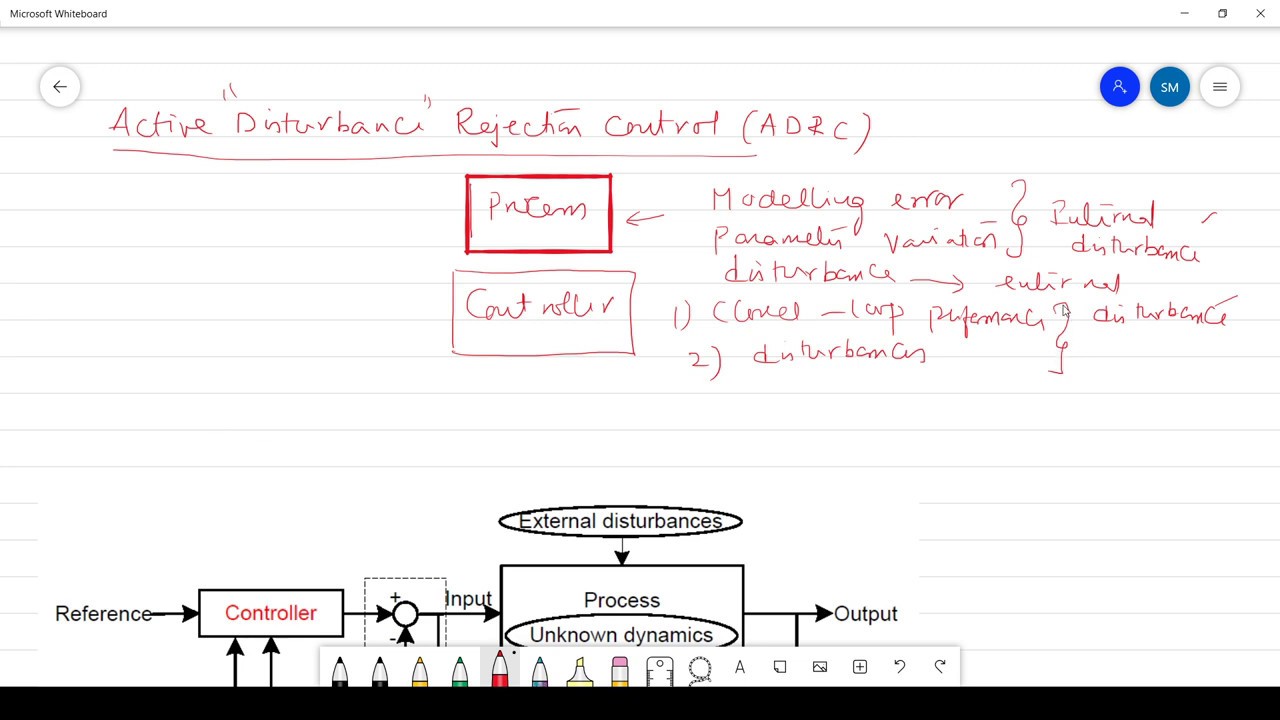 Microsoft Whiteboard
SM
Active "Disturbance" Rejection Control (ADRC)
Process
Modelling error
Internal
Parameter variation
disturbance
disturbance → external
Controller
1) Closed-loop performance
disturbance
2) disturbances
External disturbances
Reference
Controller
+
-
Input
Process
Unknown dynamics
Output
A